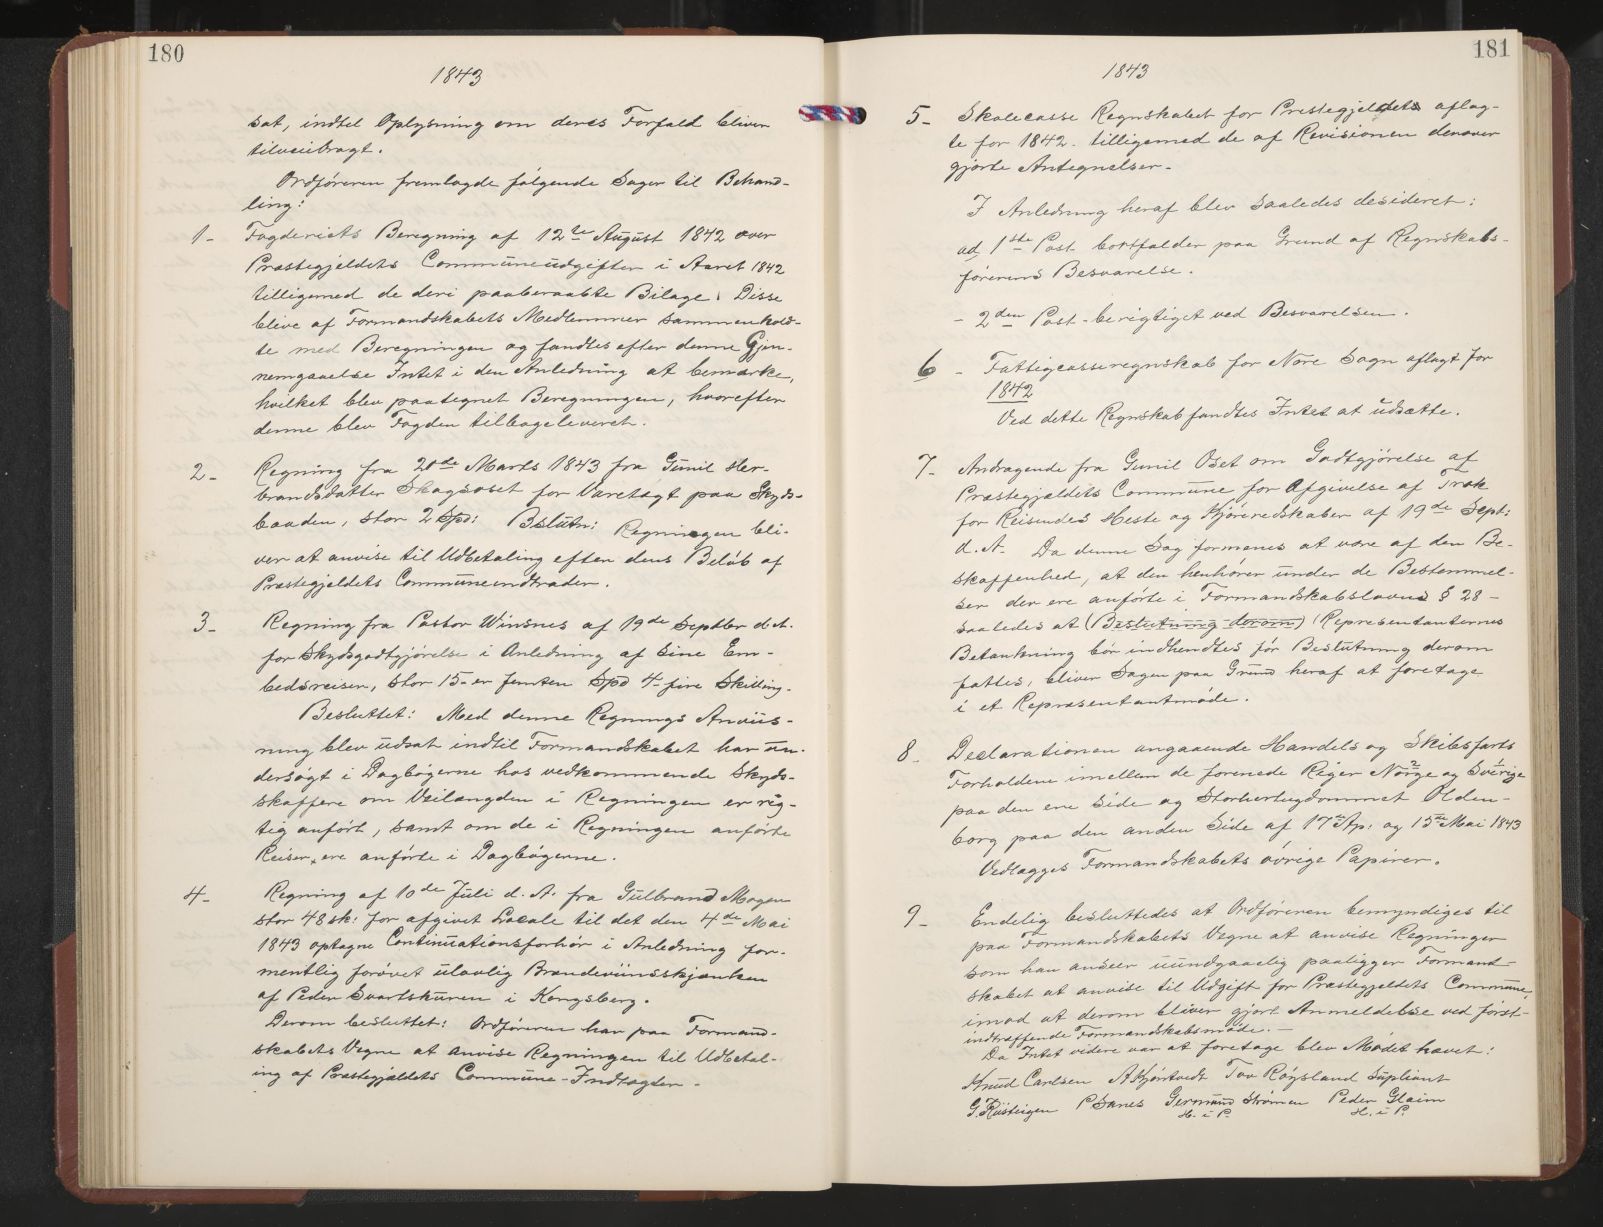 180
1843
sat, indtil Oplysning om deres Forfald bliver
tilveiebragt.
Ordføreren fremlagde følgende Sager til Behand-
ling:
1- Fogderiets Beregning af 12te August 1842 over
Præstegjeldets Communeudgifter i Aaret 1842
tilligemed de deri paaberaabte Bilage. Disse
bleve af Formandskabets Medlemmer sammenhold-
te med Beregningen og fandtes efter denne Gjen-
nemgaaelse Intet i den Anledning at bemærke,
hvilket blev paategnet Beregningen, hvorefter
denne blev Fogden tilbageleveret.
2- Regning fra 20de Marts 1843 fra Gunil Her-
brandsdatter Skagsoset for Varetægt paa Skyds-
baaden, stor 2 Spd: Beslutn: Regningen bli-
ver at anvise til Udbetaling efter dens Beløb af
Præstegjeldets Communeindtræder.
3- Regning fra Pastor Winsnes af 19de Septbr d.A.
for Skydsgodtgjørelse i Anledning af sine Em-
bedsreiser, stor 15- er femten Spd 4- fire Skilling.
Besluttet: Med denne Regnings Anviis-
ning blev udsat indtil Formandskabet har un-
dersøgt i Dagbøgerne hos vedkommende Skyds-
skaffere om Veilængden i Regningen er rig-
tig anført, samt om de i Regningen anførte
Reiser, ere anførte i Dagbøgerne.
4- Regning af 10de Juli d. A. fra Gulbrand Mogen
stor 48 sk: for afgivet Locale til det den 4de Mai
1843 optagne Continuationsforhør i Anledning for-
mentlig forøvet ulovlig Brændeviinsskjænken
af Peder Svartskuren i Kongsberg.
Derom besluttet: Ordføreren har paa Formand-
skabets Vegne at anvise Regningen til Udbetal-
ing af Præstegjældets Commune-Indtægter.
181
1843
5- Skolecasse Regnskabet for Præstegjeldets aflag-
te for 1842. tilligemed de af Revisionen derover
gjorte Antegnelser.
I Anledning heraf blev saaledes desideret:
ad 1ste Post bortfalder paa Grund af Regnskabs-
førerens Besvarelse.
- 2den Post - berigtiget ved Besvarelsen.
6 - Fattigcasseregnskab for Nore Sogn aflagt for
1842
Ved dette Regnskab fandtes Intet at udsætte.
7- Andragende fra Gunil Oset om Godtgjørelse af
Præstegjældets Commune for Afgivelse af Træk
for Reisendes Heste og Kjøreredskaber af 19de Sept:
d. A. Da denne Sag formenes at være af den Be-
skaffenhed, at den henhører under de Bestemmel-
ser der ere anførte i Formandskabslovens § 28 -
saaledes at (Beslutning derom) Representanternes
Betænkning bør indhendtes før Beslutning derom
fattes, bliver Sagen paa Grund heraf at foretage
i et Repræsentantmøde.
8- Declarationen angaaende Handels og Skibsfarts
Forholdene imellem de forenede Riger Norge og Sverige
paa den ene Side og Storhertugdømmet Olden-
borg paa den anden Side af 17de Ap: og 15de Mai 1843
Vedlægges Formandskabets øvrige Papirer.
9- Endelig besluttedes at Ordføreren bemyndiges til
paa Formandskabets Vegne at anvise Regninger
som han anseer uundgaaelig paaligger Formand-
skabet at anvise til Udgift for Præstegjeldets Commune,
imod at derom bliver gjort Anmeldelse ved først-
indtræffende Formandskabsmøde. -
Da Intet videre var at foretage blev Mødet hævet:
Knud Carlsen A Kjøntvedt Tov Røysland Supliant
G. Rusteigen P Sanes Germund Strømen Peder Glaim
H. i P. H. i P.